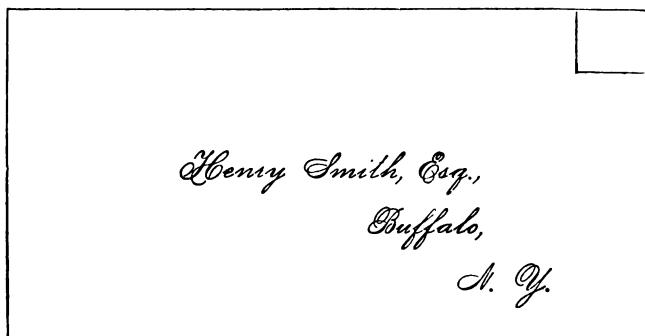 Henry Smith, Esq.,
Buffalo,
N. Y.